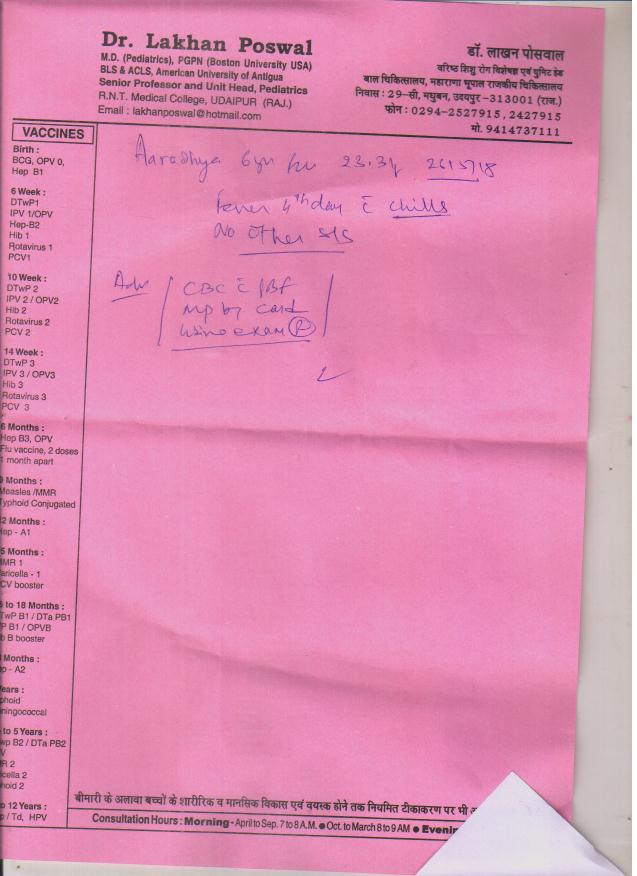 Dr. Lakhan Poswal
M.D. (Pediatrics), PGPN (Boston University USA)
BLS & ACLS, American University of Antigua
Senior Professor and Unit Head, Pediatrics
R.N.T. Medical College, UDAIPUR (RAJ.)
Email : lakhanposwal@hotmail.com
डॉ. लाखन पोसवाल
वरिष्ठ शिशु रोग विशेषज्ञ एवं युनिट हेड
बाल चिकित्सालय, महाराणा भूपाल राजकीय चिकित्सालय
निवास : 29-सी, मधुबन, उदयपुर-313001 (राज.)
फोन : 0294-2527915, 2427915
मो. 9414737111
VACCINES
Birth :
BCG, OPV 0,
Hep B1
6 Week :
DTwP1
IPV 1/OPV
Hep-B2
Hib 1
Rotavirus 1
PCV1
10 Week :
DTwP 2
IPV 2 / OPV2
Hib 2
Rotavirus 2
PCV 2
14 Week :
DTwP 3
IPV 3 / OPV3
Hib 3
Rotavirus 3
PCV 3
6 Months :
Hep B3, OPV
Flu vaccine, 2 doses
1 month apart
9 Months :
Measles /MMR
Typhoid Conjugated
2 Months :
ep - A1
5 Months :
MR 1
aricella - 1
CV booster
to 18 Months :
TwP B1 / DTa PB1
P B1 / OPVB
b B booster
Months :
p - A2
ears :
phoid
ningococcal
to 5 Years :
wp B2 / DTa PB2
V
R 2
icella 2
hoid 2
o 12 Years :
p / Td, HPV
Aaradhya 6yr 23.3
Fever 4th day c̄ chills
No other s/s
Adv
CBC c̄ PBF
mp by card
Urine exam (R)
बीमारी के अलावा बच्चों के शारीरिक व मानसिक विकास एवं वयस्क होने तक नियमित टीकाकरण पर भी
Consultation Hours : Morning - April to Sep. 7 to 8 A.M. ● Oct. to March 8 to 9 AM ● Evenin